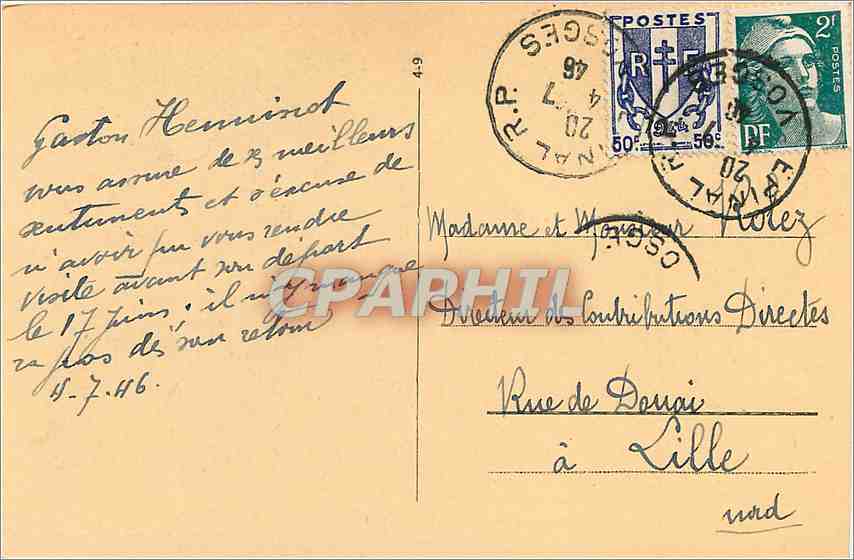 Gaston Henninot
vous assure de ses meilleurs
sentiments et s'excuse de
n'avoir pu vous rendre
visite avant son départ
le 17 juin. il n'y manque
ra pas dès son retour
4-7.46.
4-9
POSTES
R F
50c 50c
2f
POSTES
RF
NAL R.P.
OSGES
20
4 7
46
E INAL R
VOSGES
20
OSGE
Madame et Monsieur Notez
Directeur des Contributions Directes
Rue de Douai
à Lille
nord
CPARPHIL